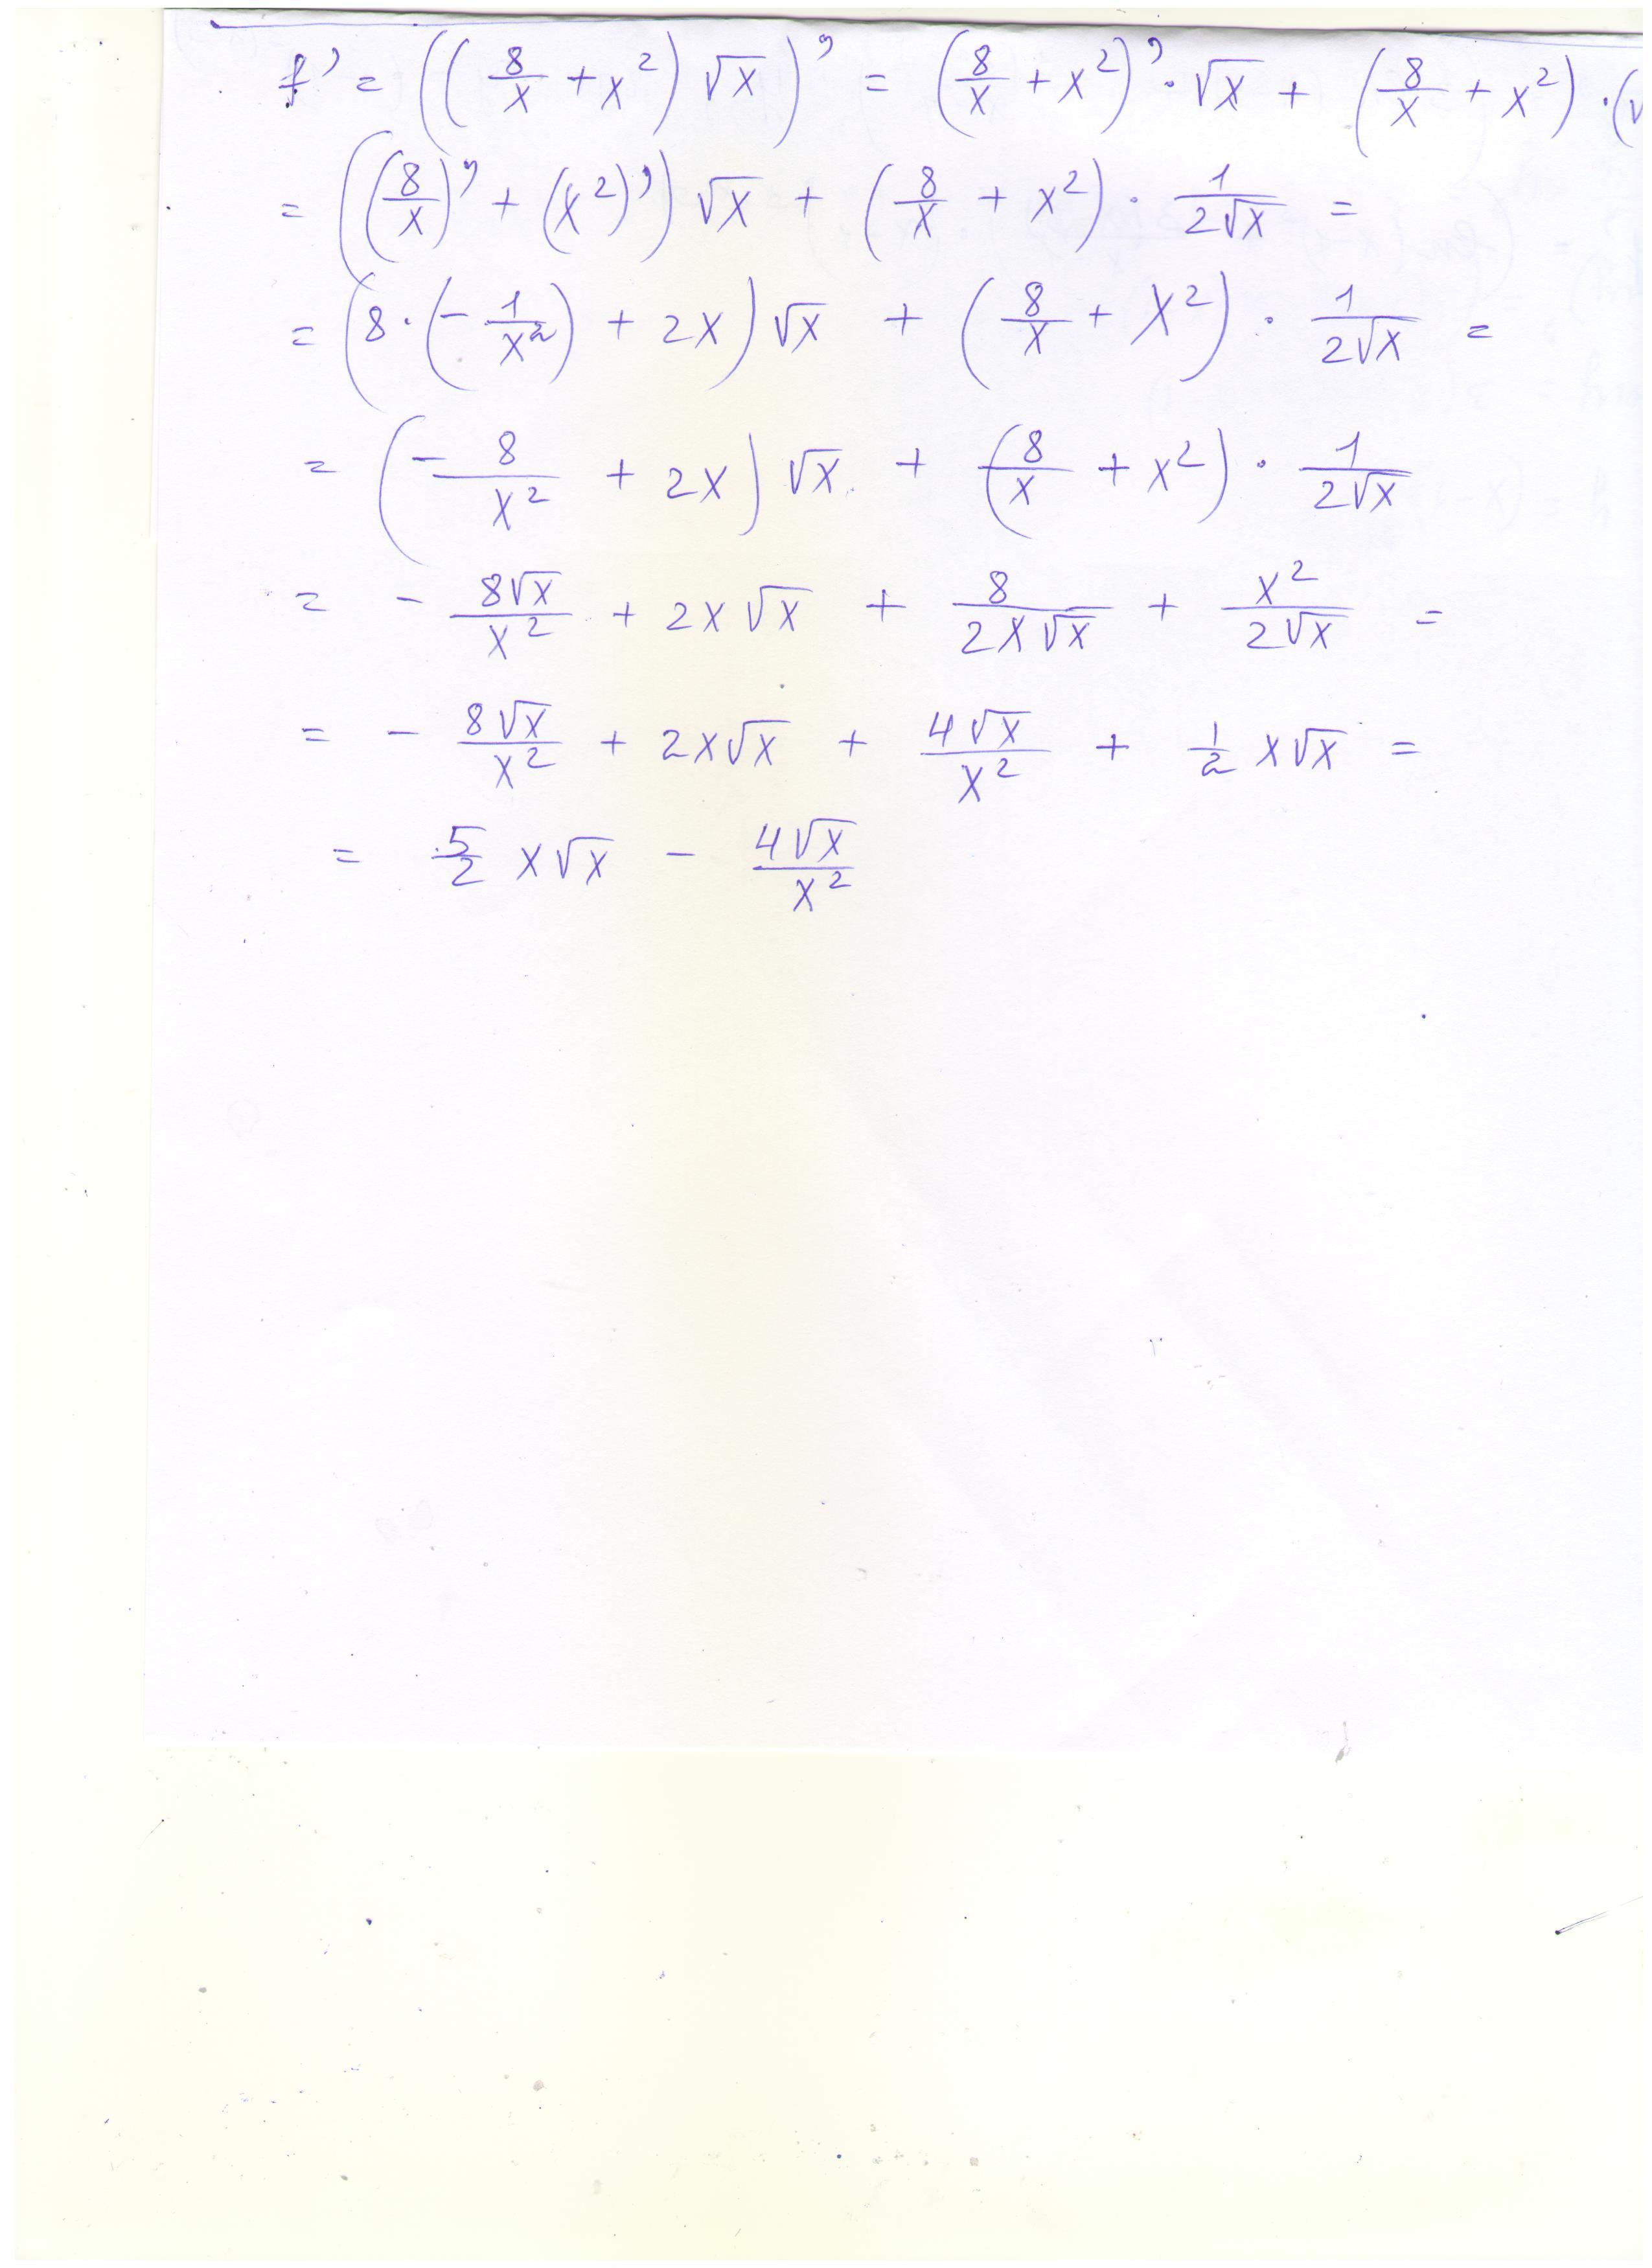 f' = ((8/x + x²) √x)' = (8/x + x²)' · √x + (8/x + x²) · (√
= ((8/x)' + (x²)') √x + (8/x + x²) · 1/(2√x) =
= (8 · (-1/x²) + 2x) √x + (8/x + x²) · 1/(2√x) =
= (-8/x² + 2x) √x + (8/x + x²) · 1/(2√x)
= - 8√x/x² + 2x√x + 8/(2x√x) + x²/(2√x) =
= - 8√x/x² + 2x√x + 4√x/x² + 1/2 x√x =
= 5/2 x√x - 4√x/x²